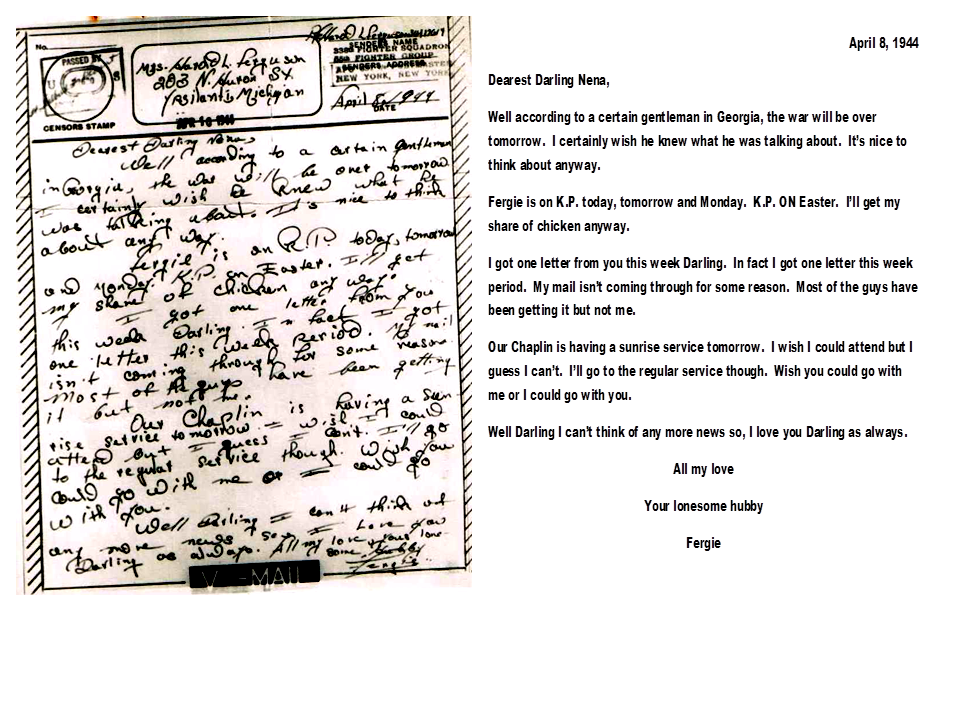 No.
PASSED BY
U S
CENSORS STAMP
Mrs. Harold L. Ferguson
203 N. Huron St.
Ypsilanti, Michigan
APR 16 1944
Harold L. Ferguson
SENDERS NAME
FIGHTER SQUADRON
FIGHTER GROUP
SENDERS ADDRESS
NEW YORK, NEW YORK
April 8, 1944
DATE
Dearest Darling Nena,
Well according to a certain gentleman
in Georgia, the war will be over tomorrow.
I certainly wish he knew what he
was talking about. It's nice to think
about any way.
Fergie is on K.P. today, tomorrow
and Monday. K.P. on Easter. I'll get
my share of chicken any way.
I got one letter from you
this week Darling. In fact I got
one letter this week period. My mail
isn't coming through for some reason.
Most of the guys have been getting
it but not me.
Our Chaplin is having a sun-
rise service tomorrow. I wish I could
attend but I guess I can't. I'll go
to the regular service though. Wish you
could go with me or I could go
with you.
Well Darling I can't think of
any more news so, I love you
Darling as always. All my love, your lone-
some Hubby
Fergie
V-MAIL
April 8, 1944
Dearest Darling Nena,
Well according to a certain gentleman in Georgia, the war will be over
tomorrow. I certainly wish he knew what he was talking about. It's nice to
think about anyway.
Fergie is on K.P. today, tomorrow and Monday. K.P. ON Easter. I'll get my
share of chicken anyway.
I got one letter from you this week Darling. In fact I got one letter this week
period. My mail isn't coming through for some reason. Most of the guys have
been getting it but not me.
Our Chaplin is having a sunrise service tomorrow. I wish I could attend but I
guess I can't. I'll go to the regular service though. Wish you could go with
me or I could go with you.
Well Darling I can't think of any more news so, I love you Darling as always.
All my love
Your lonesome hubby
Fergie